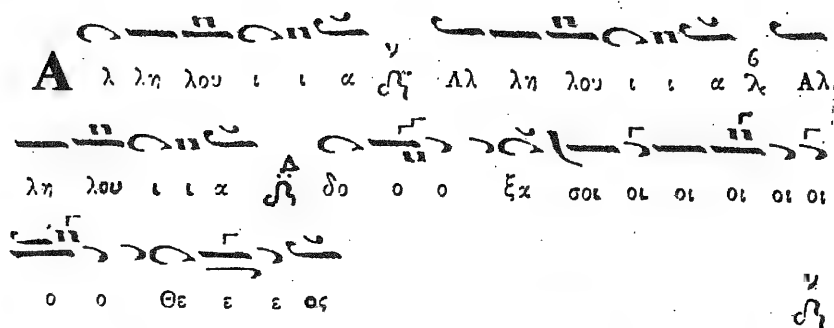 Α λ λη λου ι ι α ν Αλ λη λου ι ι α Αλ
λη λου ι ι α Δ δο ο ο ξα σοι οι οι οι οι οι
ο ο Θε ε ε ος ν